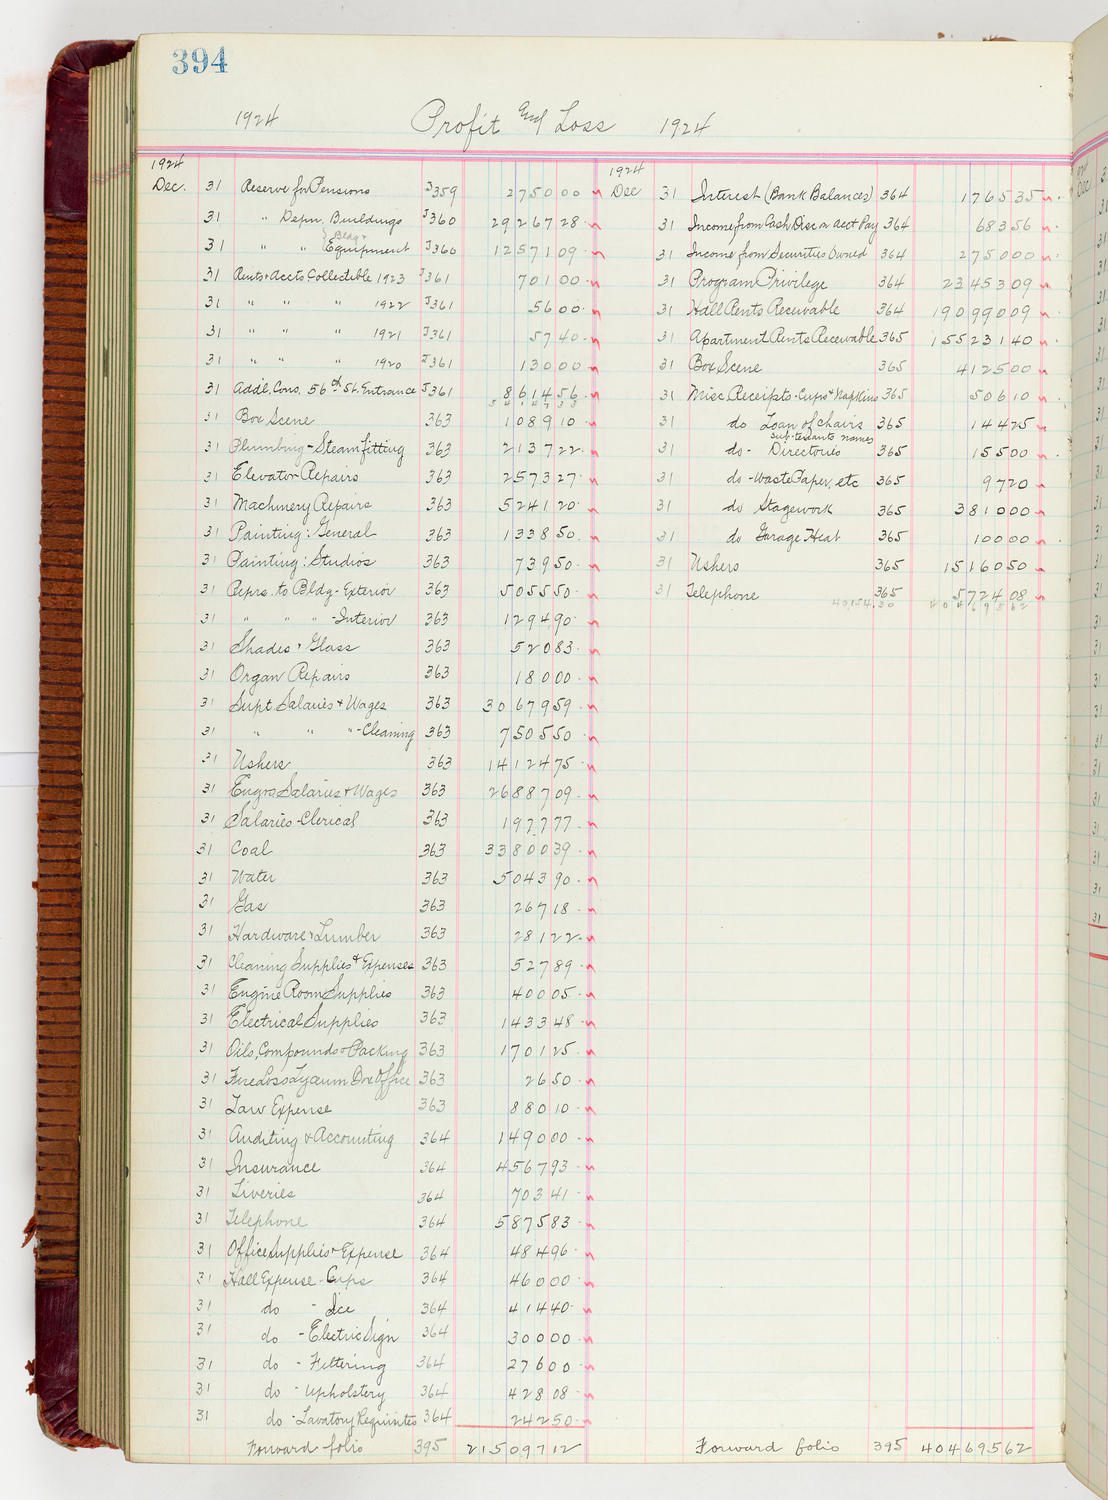 394
1924 Profit and Loss 1924
1924
Dec. 31 Reserve for Pensions J359 2750 00
31 " Depn. Buildings J360 29267 28
Bldg
31 " " Equipment J360 12571 09
31 Rents & Accts Collectible 1923 J361 701 00
31 " " " 1922 J361 56 00
31 " " " 1921 J361 57 40
31 " " " 1920 J361 130 00
31 Addl. Cons. 56th St. Entrance J361 8614 56
31 Box Scene 363 1089 10
31 Plumbing - Steamfitting 363 2137 22
31 Elevator Repairs 363 2573 27
31 Machinery Repairs 363 5241 20
31 Painting: General 363 1338 50
31 Painting: Studios 363 739 50
31 Reprs. to Bldg - Exterior 363 5055 50
31 " " " - Interior 363 1294 90
31 Shades & Glass 363 520 83
31 Organ Repairs 363 180 00
31 Supt Salaries & Wages 363 30679 59
31 " " " - Cleaning 363 7505 50
31 Ushers 363 14124 75
31 Engrs Salaries & Wages 363 26887 09
31 Salaries - Clerical 363 1977 77
31 Coal 363 33800 39
31 Water 363 5043 90
31 Gas 363 267 18
31 Hardware & Lumber 363 281 22
31 Cleaning Supplies & Expenses 363 527 89
31 Engine Room Supplies 363 400 05
31 Electrical Supplies 363 1433 48
31 Oils, Compounds & Packing 363 1701 25
31 Fire Loss Lyceum Box Office 363 26 50
31 Law Expense 363 880 10
31 Auditing & Accounting 364 1490 00
31 Insurance 364 4567 93
31 Liveries 364 703 41
31 Telephone 364 5875 83
31 Office Supplies & Expense 364 484 96
31 Hall Expense - Cups 364 460 00
31 do - Ice 364 414 40
31 do - Electric Sign 364 300 00
31 do - Filtering 364 276 00
31 do - Upholstery 364 428 08
31 do - Lavatory Requisites 364 242 50
Forward folio 395 215097 12
1924
Dec 31 Interest (Bank Balances) 364 1765 35
31 Income from Cash Disc on Acct Pay 364 683 56
31 Income from Securities Owned 364 2750 00
31 Program Privilege 364 23453 09
31 Hall Rents Receivable 364 190990 09
31 Apartment Rents Receivable 365 155231 40
31 Box Scene 365 4125 00
31 Misc Receipts - Cups & Napkins 365 506 10
31 do Loan of chairs 365 144 25
sub-tenants names
31 do - Directories 365 155 00
31 do - Waste Paper, etc 365 97 20
31 do Stagework 365 3810 00
31 do Garage Heat 365 100 00
31 Ushers 365 15160 50
31 Telephone 365 5724 08
404695 62
Forward folio 395 404695 62